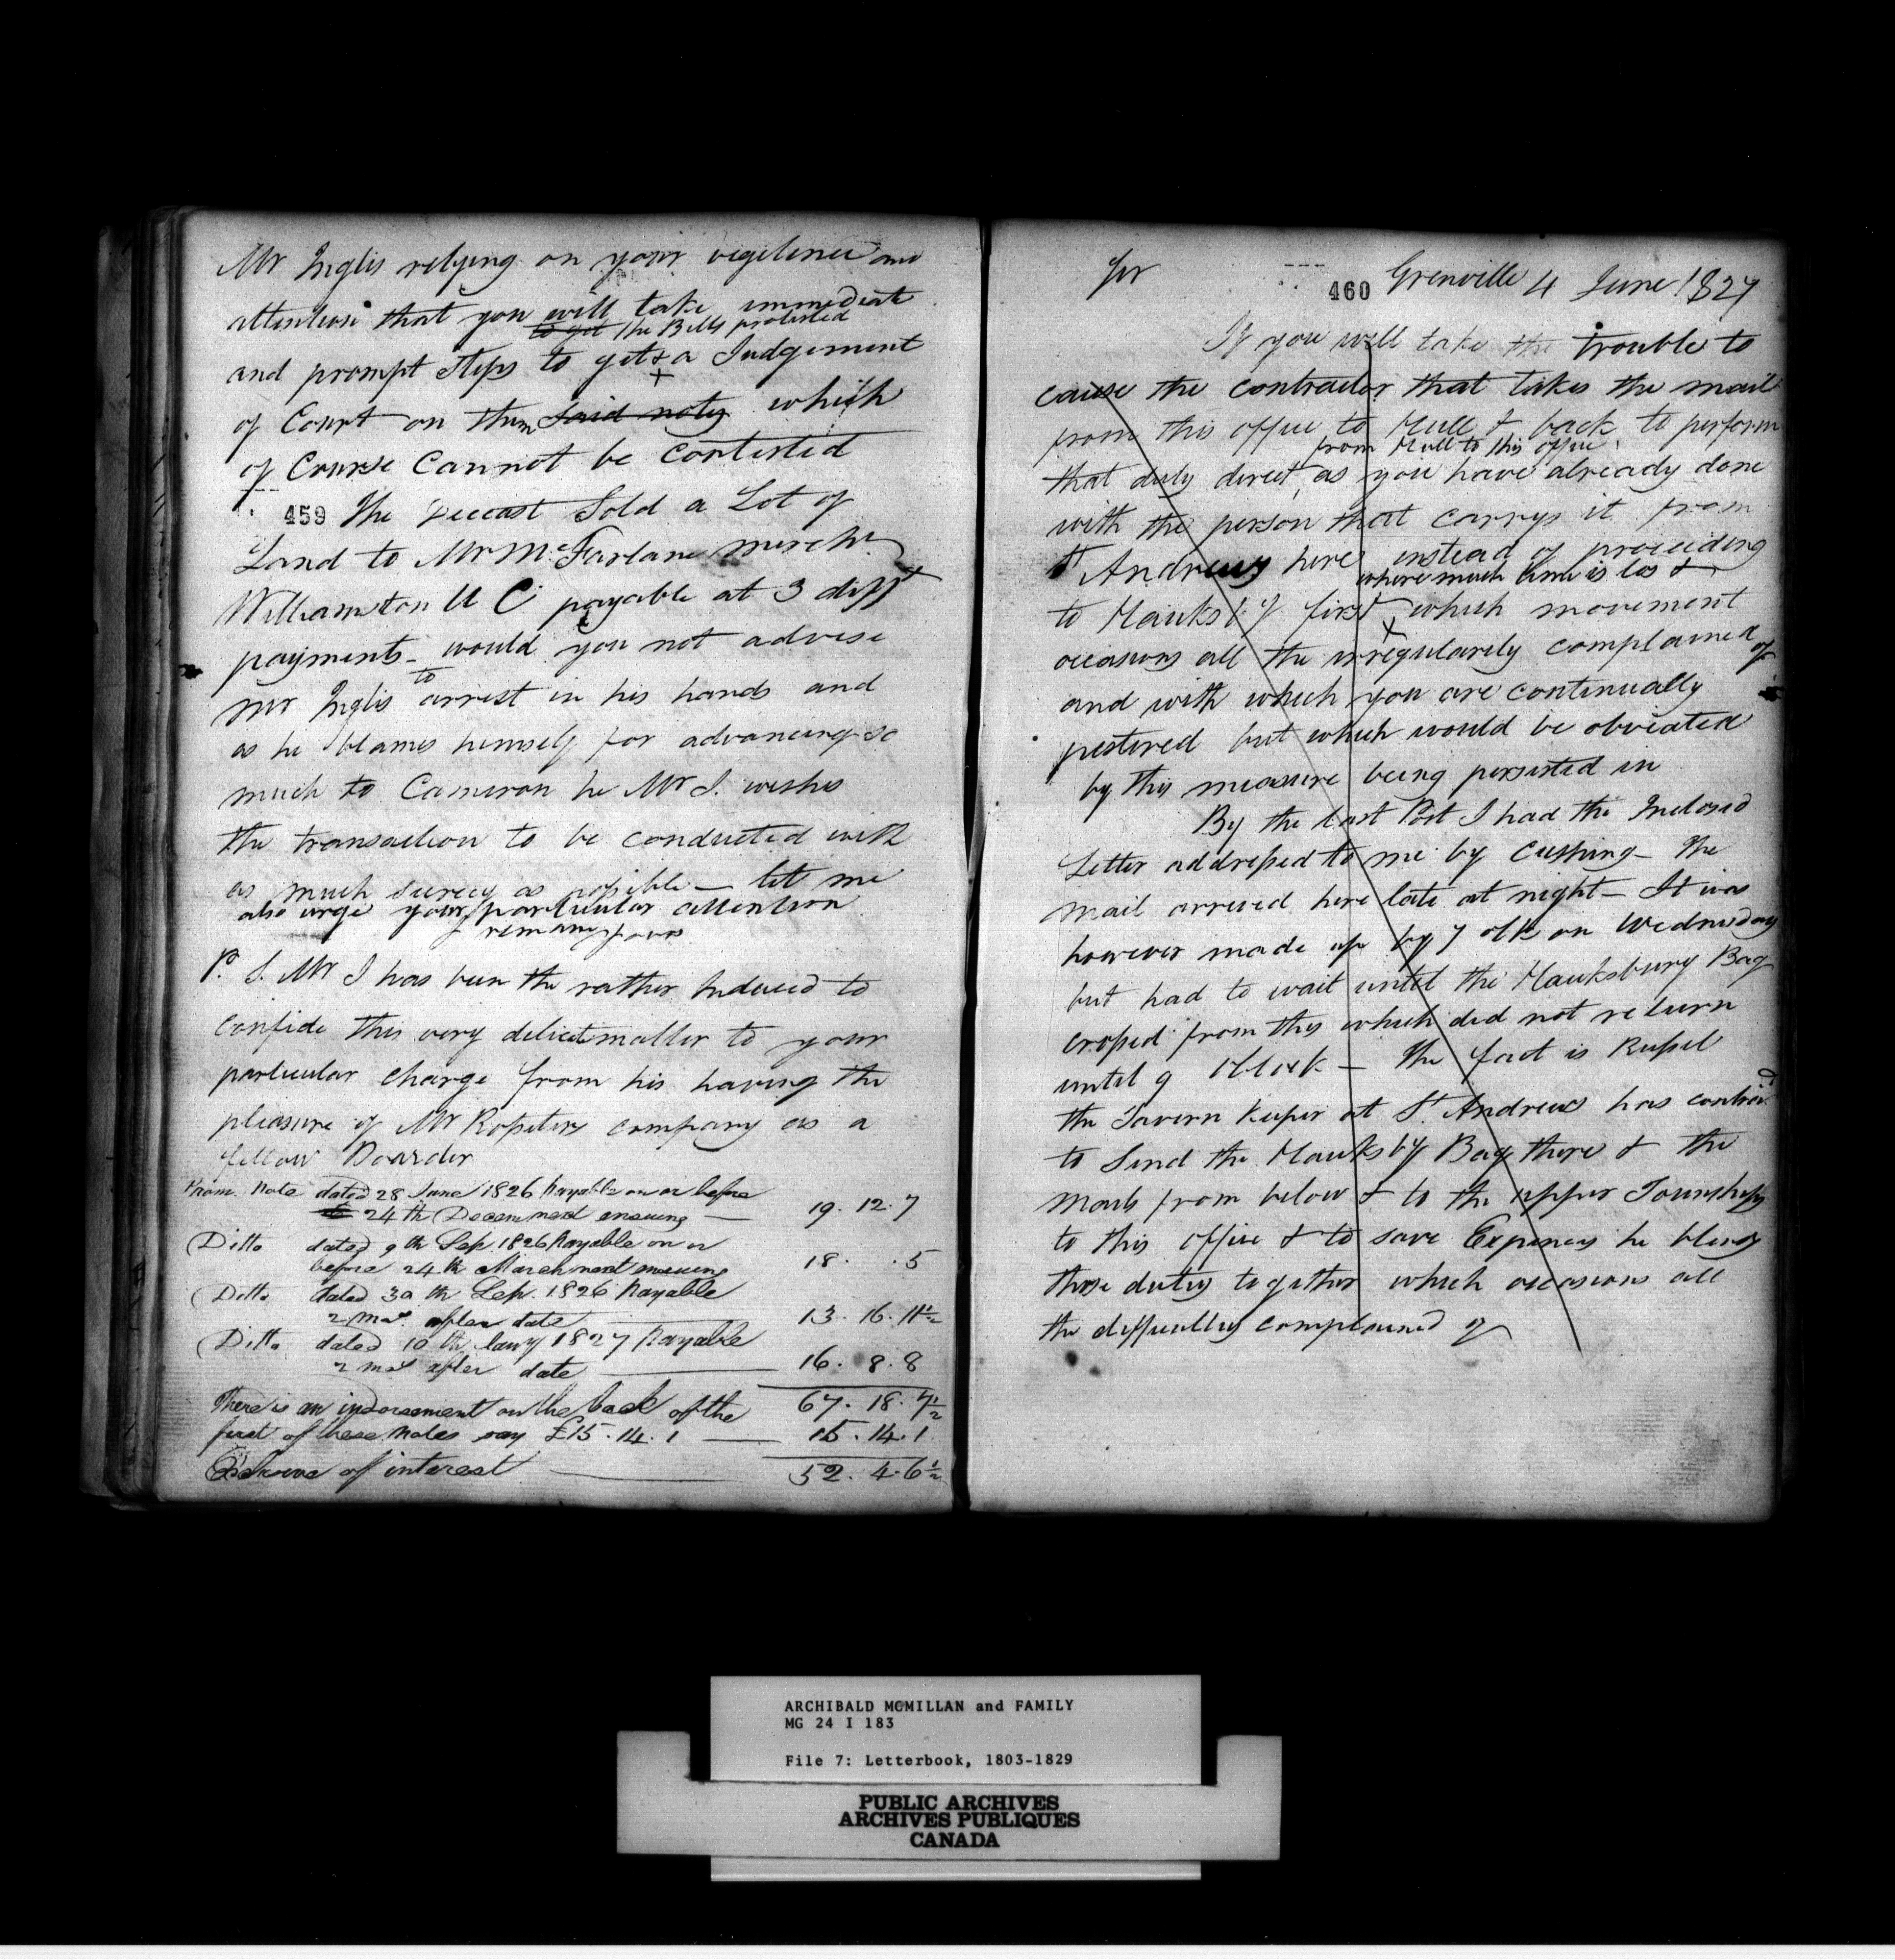 Mr Inglis relying on your vigilence and
attention that you will take immediate
to get the Bills protested
and prompt steps to get & a Judgement
of Court on them said notes which
of Course cannot be contested
459 The Deceast Sold a Lot of
Land to Mr McFarlane merch
Williamston U C payable at 3 difft
payments - would you not advise
Mr Inglis to arrest in his hands and
as he blames himself for advancing so
much to Cameron he Mr I. wishes
the transaction to be conducted with
as much secrecy as possible — let me
also urge your particular attention
remaing yours
P. S. Mr I has been the rather Induced to
confide this very delicate matter to your
particular charge from his having the
pleasure of Mr Rossiters company as a
fellow Boarder
Prom. Note dated 28 June 1826 payable on or before
24th Decem next ensuing — 19. 12. 7
Ditto dated 9th Sep 1826 payable on or
before 24th March next ensuing 18. . 5
Ditto dated 30th Sep. 1826 payable
2 mos. after date 13. 16. 11½
Ditto dated 10th Jany 1827 payable
2 mos after date 16. 8. 8
There is an indorsement on the back of the 67. 18. 7½
first of these notes say £15. 14. 1 — 15. 14. 1
Exclusive of interest 52. 4. 6½
Sir 460 Grenville 4 June 1827
If you will take the trouble to
cause the contractor that takes the mail
from this office to Hull & back to perform
from Hull to this office
that duty direct, as you have already done
with the person that carrys it from
St Andrews here instead of proceeding
where much time is los &
to Hauksby first, which movement
occasions all the irregularity complained of
and with which you are continually
pestered but which would be obviated
by this measure being persisted in
By the last Post I had the Inclosed
Letter addressed to me by Cushing - The
mail arrived here late at night — It was
however made up by 7 oClk on Wednesday
but had to wait until the Hauksbury Bag
crossed from this which did not return
until 9 oClock — The fact is Russel
the Tavern Keeper at St Andrews has contrivd
to Send the Hauksby Bag there & the
Mails from below & to the upper Townships
to this office & to save Expenses he blends
those dutys together which occasions all
the difficultys complained of
ARCHIBALD MCMILLAN and FAMILY
MG 24 I 183
File 7: Letterbook, 1803-1829
PUBLIC ARCHIVES
ARCHIVES PUBLIQUES
CANADA